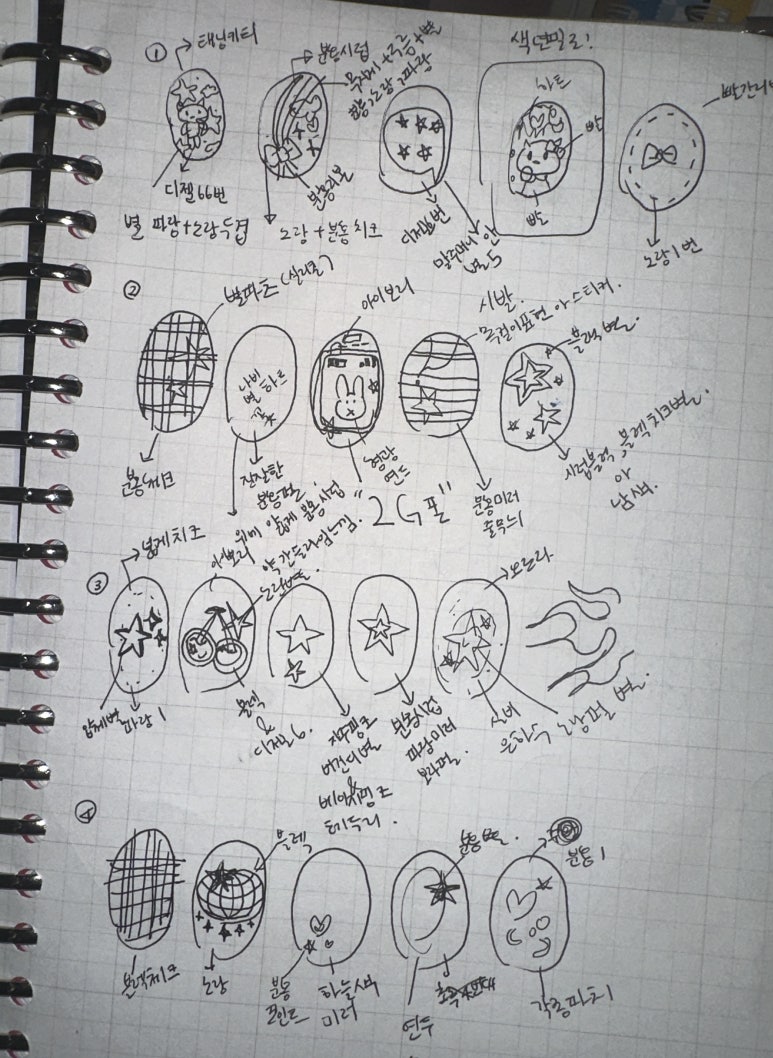 ①
태닝키티
분홍시럽
무지개+구름+별
분홍,노랑,파랑
색연필로!
하트
빨
빨
디젤66번
별 파랑+노랑두겹
분홍리본
노랑+분홍치크
디젤6번
말주머니 안
별5
노랑1번
②
별파츠(실리콘)
아이보리
시발.
목걸이표현 아 스티커.
블랙별
나비
별 하트
분홍체크
잔잔한
분홍펄.
위에 얇게 분홍시럽
아이보리
형광
연두
"2G폰"
분홍미러
줄무늬
시럽블랙, 블렉치크별.
아
남색.
③
넓게치크
약간드라임느낌.
노랑별.
오로라
입체별
파랑1
블렉
&
디젤6.
자두핑크
버건디별
&
베이비핑크
테두리.
분홍시럽
파랑미러
보라펄.
실버
은하수 노랑펄 별.
④
블렉
분홍별.
분홍1
블렉체크
노랑
분홍
포인트
하늘색
미러
연두
각종파츠1